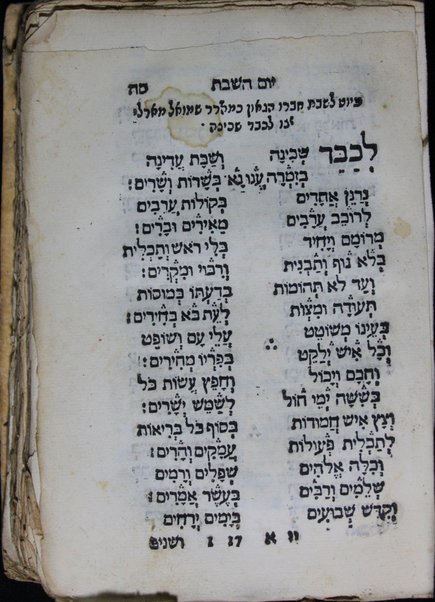 יום השבת סה
פיוט לשבת חברו הגאון כמהרר שמואל מארלי
זנו לכבד שכינה
לְכַבֵּד שְׁכִינָה וְשַׁבָּת עֲדִינָה
בְּזִמְרָה עֲנוּ נָא בְּשָׂרוֹת וְשָׁרִים:
נְרַנֵּן אֲחָדִים בְּקוֹלוֹת עֲרֵבִים
לְרוֹכֵב עֲרָבִים מְאִירִים וּבָרִים:
מְרוֹמָם וְיָחִיד בְּלִי רֹאשׁ וְתַכְלִית
בְּלֹא גוּף וְתַבְנִית וְרִבּוּי וּמִקְרִים:
וְעַד לֹא תְהוֹמוֹת בְּדַעְתּוֹ כְּמוּסוֹת
תְּעוּדָה וּמִצְוֹת לְעֵת בֹּא בְּחִירִים:
בְּעֵינוֹ מְשׁוֹטֵט עֲלֵי עַם וְשׁוֹפֵט
וְכָל אִישׁ יְלַקֵּט בְּפִרְיוֹ מְחִירִים:
וְחָכָם וְיָכוֹל וְחָפֵץ עֲשׂוֹת כֹּל
בְּשִׁשָּׁה יְמֵי חוֹל לְשַׁמֵּשׁ יְשָׁרִים:
וְנָץ אִישׁ חֲמוּדוֹת בְּסוֹף כֹּל בְּרִיאוֹת
לְתַכְלִית פְּעוּלוֹת עֲמָקִים וְהָרִים:
וְכִלָּה אֱלֹהִים שְׁפָלִים וְרָמִים
שְׁלֵמִים וְרַבִּים בְּעֶשֶׂר אֲמָרִים:
וְקִדֵּשׁ שְׁבוּעִים בְּיָמִים יְרָחִים
ושנים